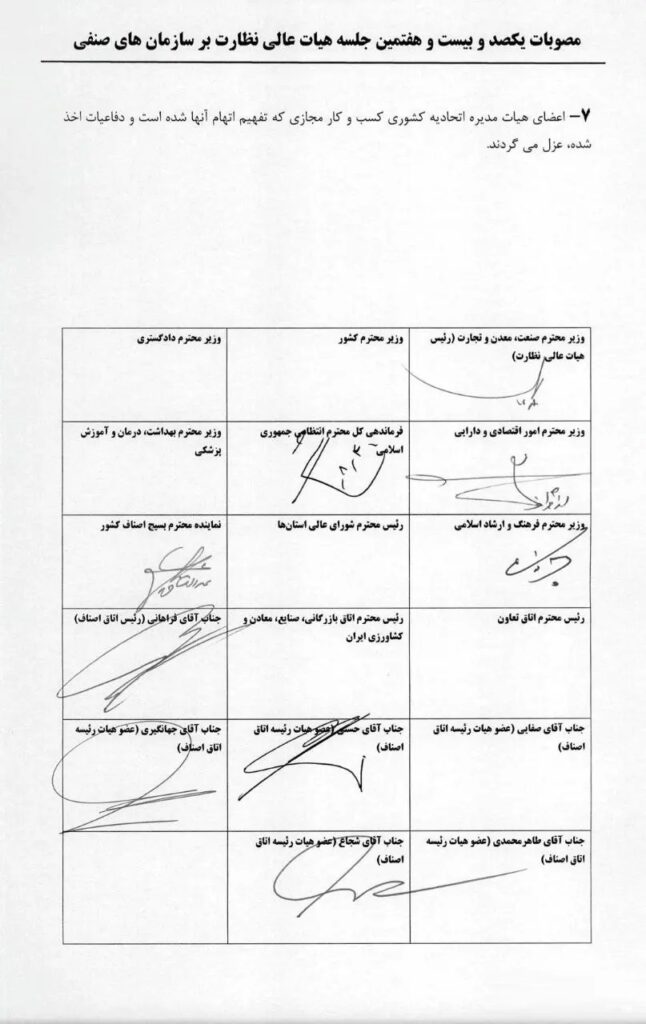 مصوبات یکصد و بیست و هفتمین جلسه هیات عالی نظارت بر سازمان های صنفی
۷– اعضای هیات مدیره اتحادیه کشوری کسب و کار مجازی که تفهیم اتهام آنها شده است و دفاعیات اخذ
شده، عزل می گردند.
وزیر محترم صنعت، معدن و تجارت (رئیس
هیات عالی نظارت)
وزیر محترم کشور
وزیر محترم دادگستری
وزیر محترم امور اقتصادی و دارایی
فرماندهی کل محترم انتظامی جمهوری
اسلامی
وزیر محترم بهداشت، درمان و آموزش
پزشکی
وزیر محترم فرهنگ و ارشاد اسلامی
رئیس محترم شورای عالی استان‌ها
نماینده محترم بسیج اصناف کشور
رئیس محترم اتاق تعاون
رئیس محترم اتاق بازرگانی، صنایع، معادن و
کشاورزی ایران
جناب آقای فراهانی (رئیس اتاق اصناف)
جناب آقای صفایی (عضو هیات رئیسه اتاق
اصناف)
جناب آقای (عضو هیات رئیسه اتاق
اصناف)
جناب آقای جهانگیری (عضو هیات رئیسه
اتاق اصناف)
جناب آقای طاهرمحمدی (عضو هیات رئیسه
اتاق اصناف)
جناب آقای شجاع (عضو هیات رئیسه اتاق
اصناف)